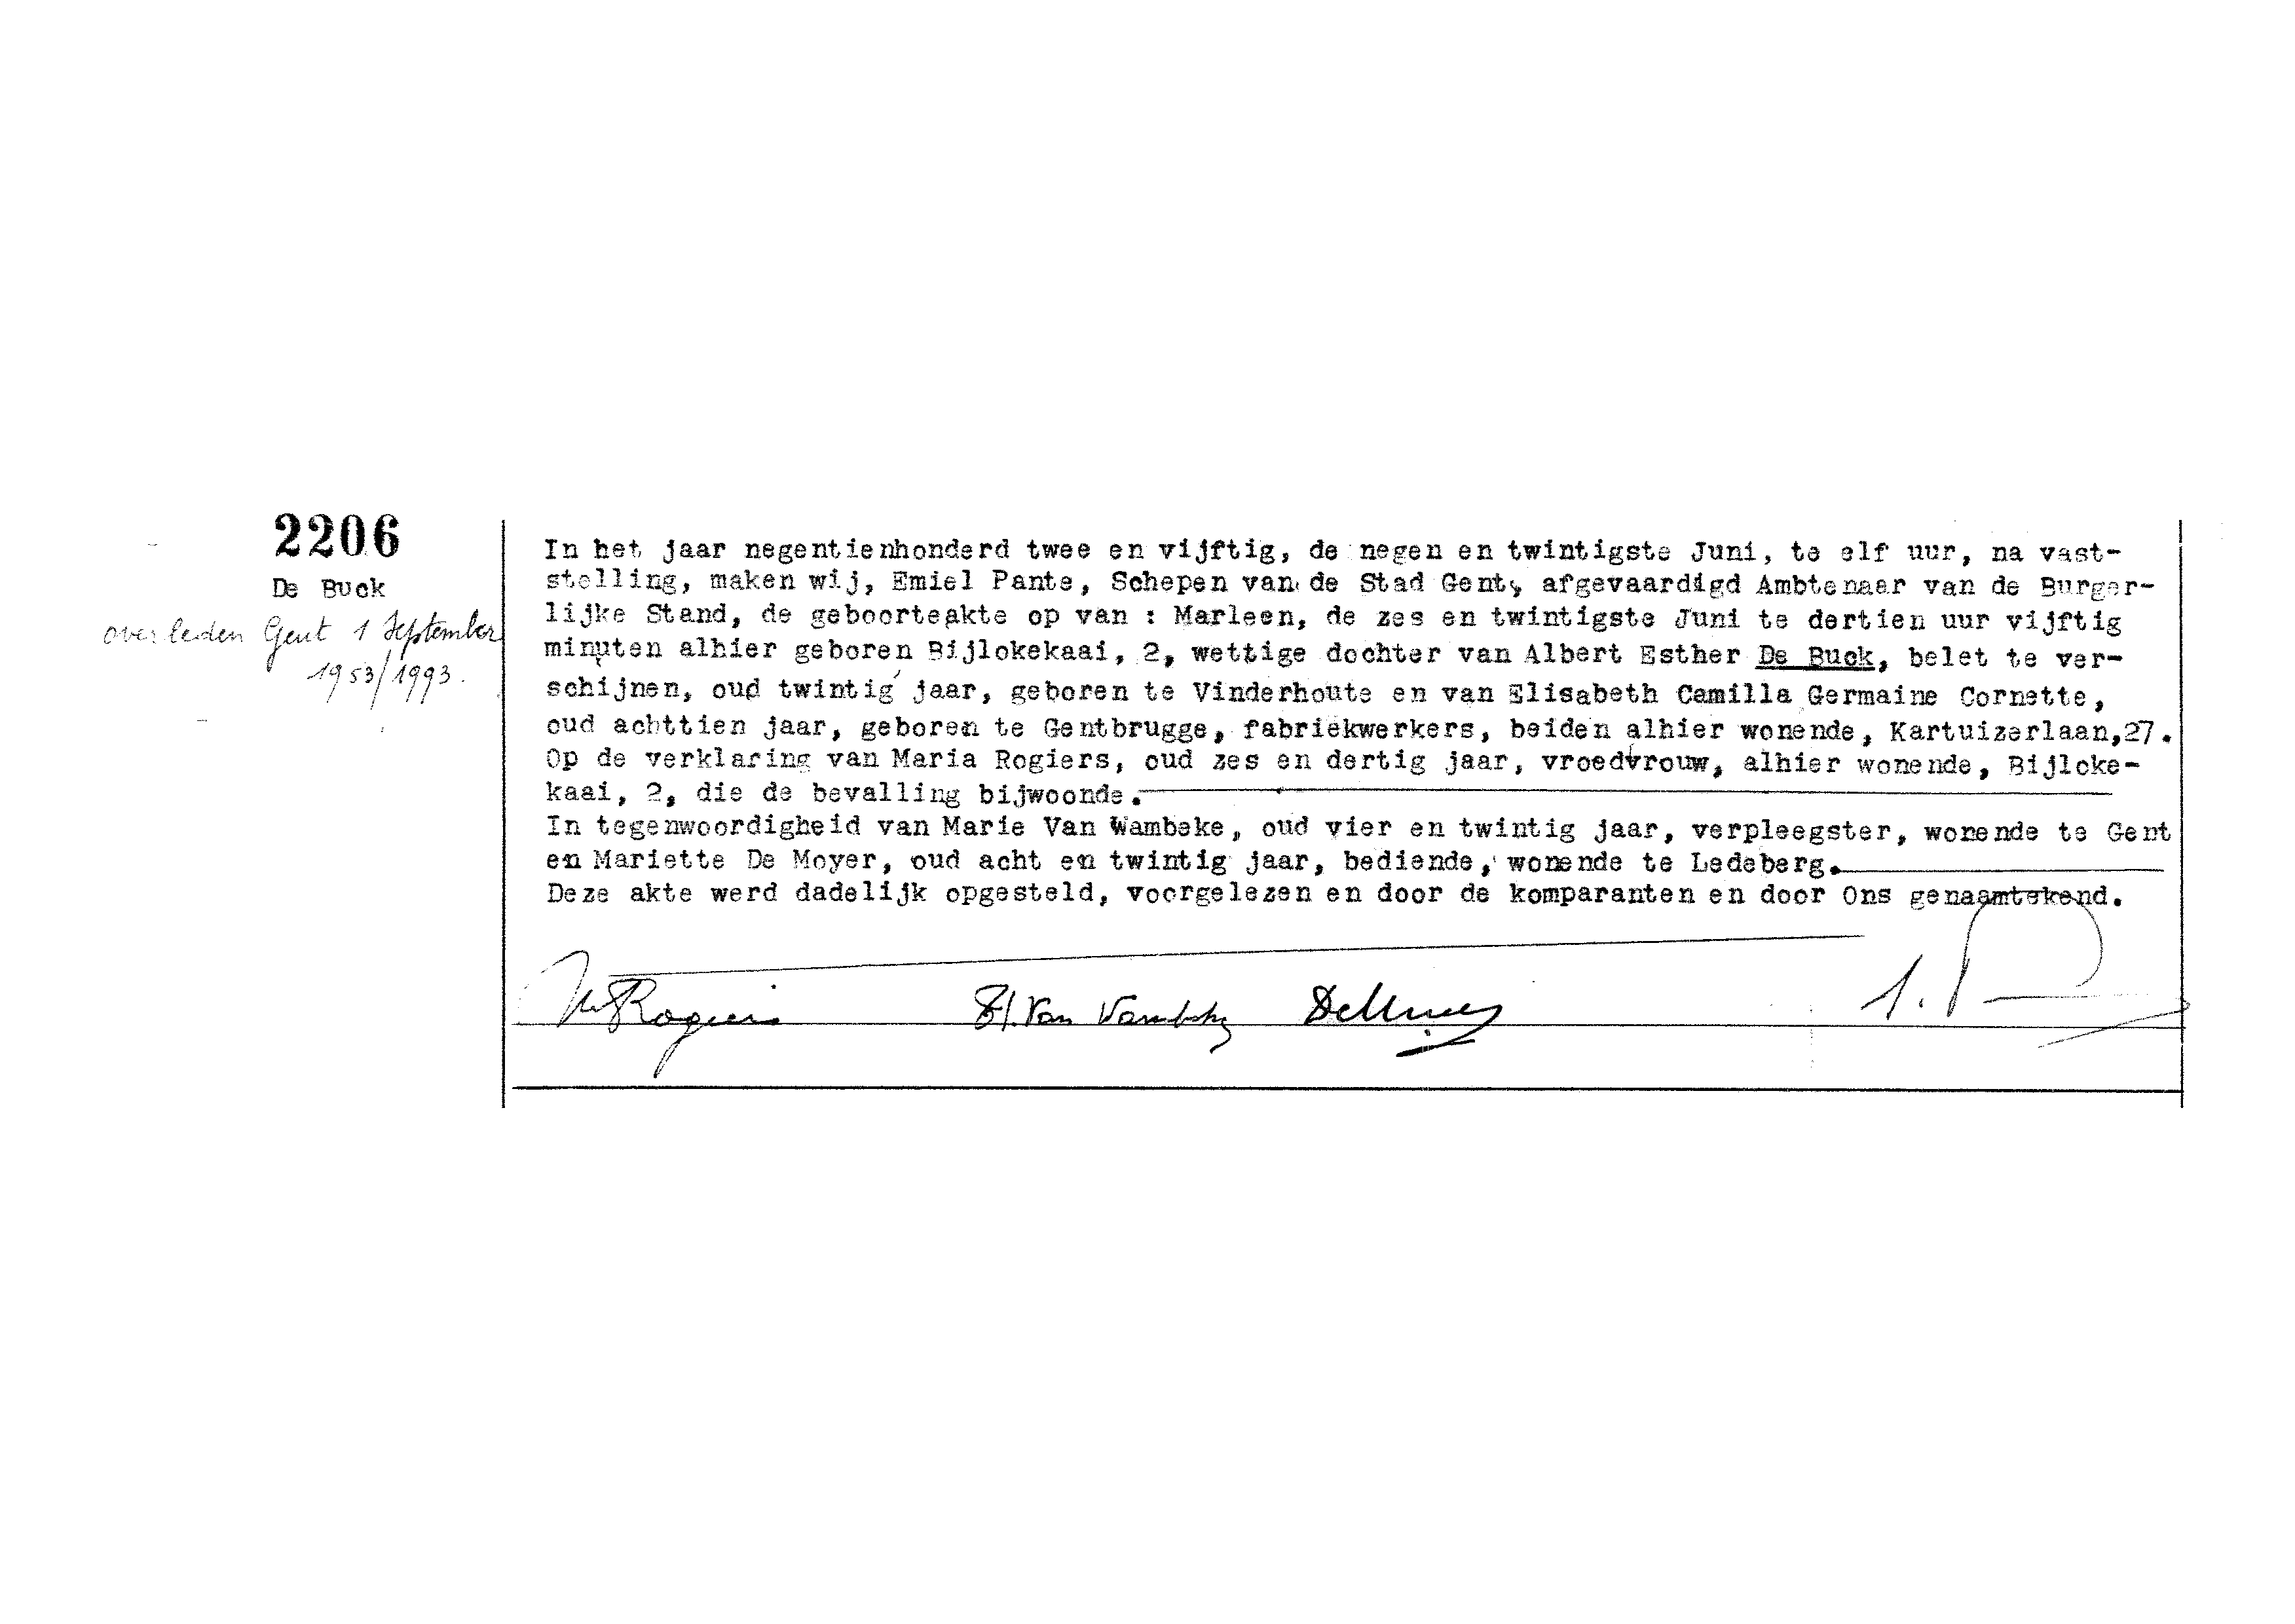 2206
De Buck
overleden Gent 1 September
1953/1993.
In het jaar negentienhonderd twee en vijftig, de negen en twintigste Juni, te elf uur, na vast-
stelling, maken wij, Emiel Pante, Schepen van de Stad Gent, afgevaardigd Ambtenaar van de Burger-
lijke Stand, de geboorteakte op van : Marleen, de zes en twintigste Juni te dertien uur vijftig
minuten alhier geboren Bijlokekaai, 2, wettige dochter van Albert Esther De Buck, belet te ver-
schijnen, oud twintig jaar, geboren te Vinderhoute en van Elisabeth Camilla Germaine Cornette,
oud achttien jaar, geboren te Gentbrugge, fabriekwerkers, beiden alhier wonende, Kartuizerlaan,27.
Op de verklaring van Maria Rogiers, oud zes en dertig jaar, vroedvrouw, alhier wonende, Bijloke-
kaai, 2, die de bevalling bijwoonde.
In tegenwoordigheid van Marie Van Wambeke, oud vier en twintig jaar, verpleegster, wonende te Gent
en Mariette De Moyer, oud acht en twintig jaar, bediende, wonende te Ledeberg.
Deze akte werd dadelijk opgesteld, voorgelezen en door de komparanten en door Ons genaamtekend.
Rogiers Van Wambeke